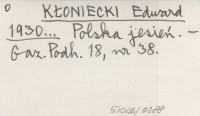 KŁONIECKI Edward
1930... Polska jesień. –
Gaz. Podh. 18, nr 38.